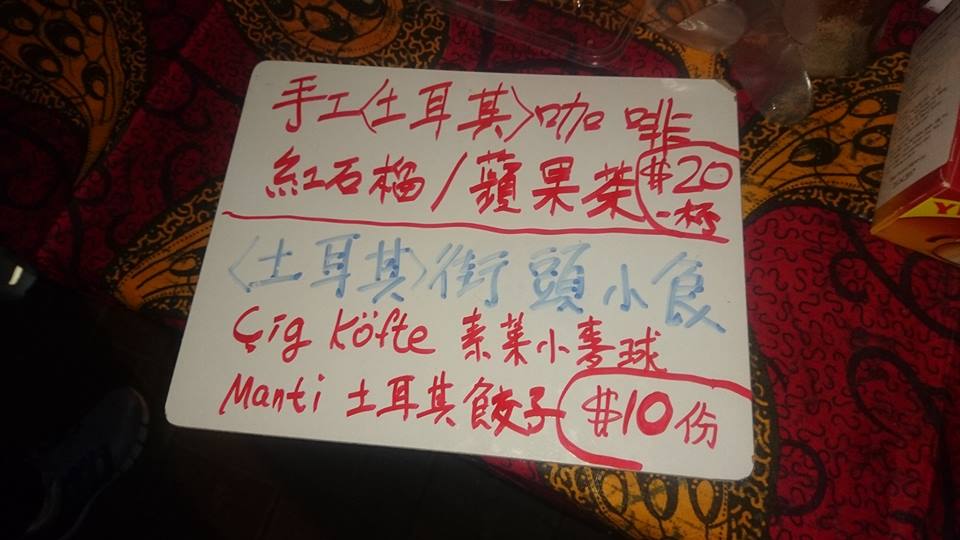 手工〈土耳其〉咖啡
紅石榴/蘋果茶 $20
一杯
〈土耳其〉街頭小食
Çig Köfte 素菜小麥球
Manti 土耳其餃子 $10份